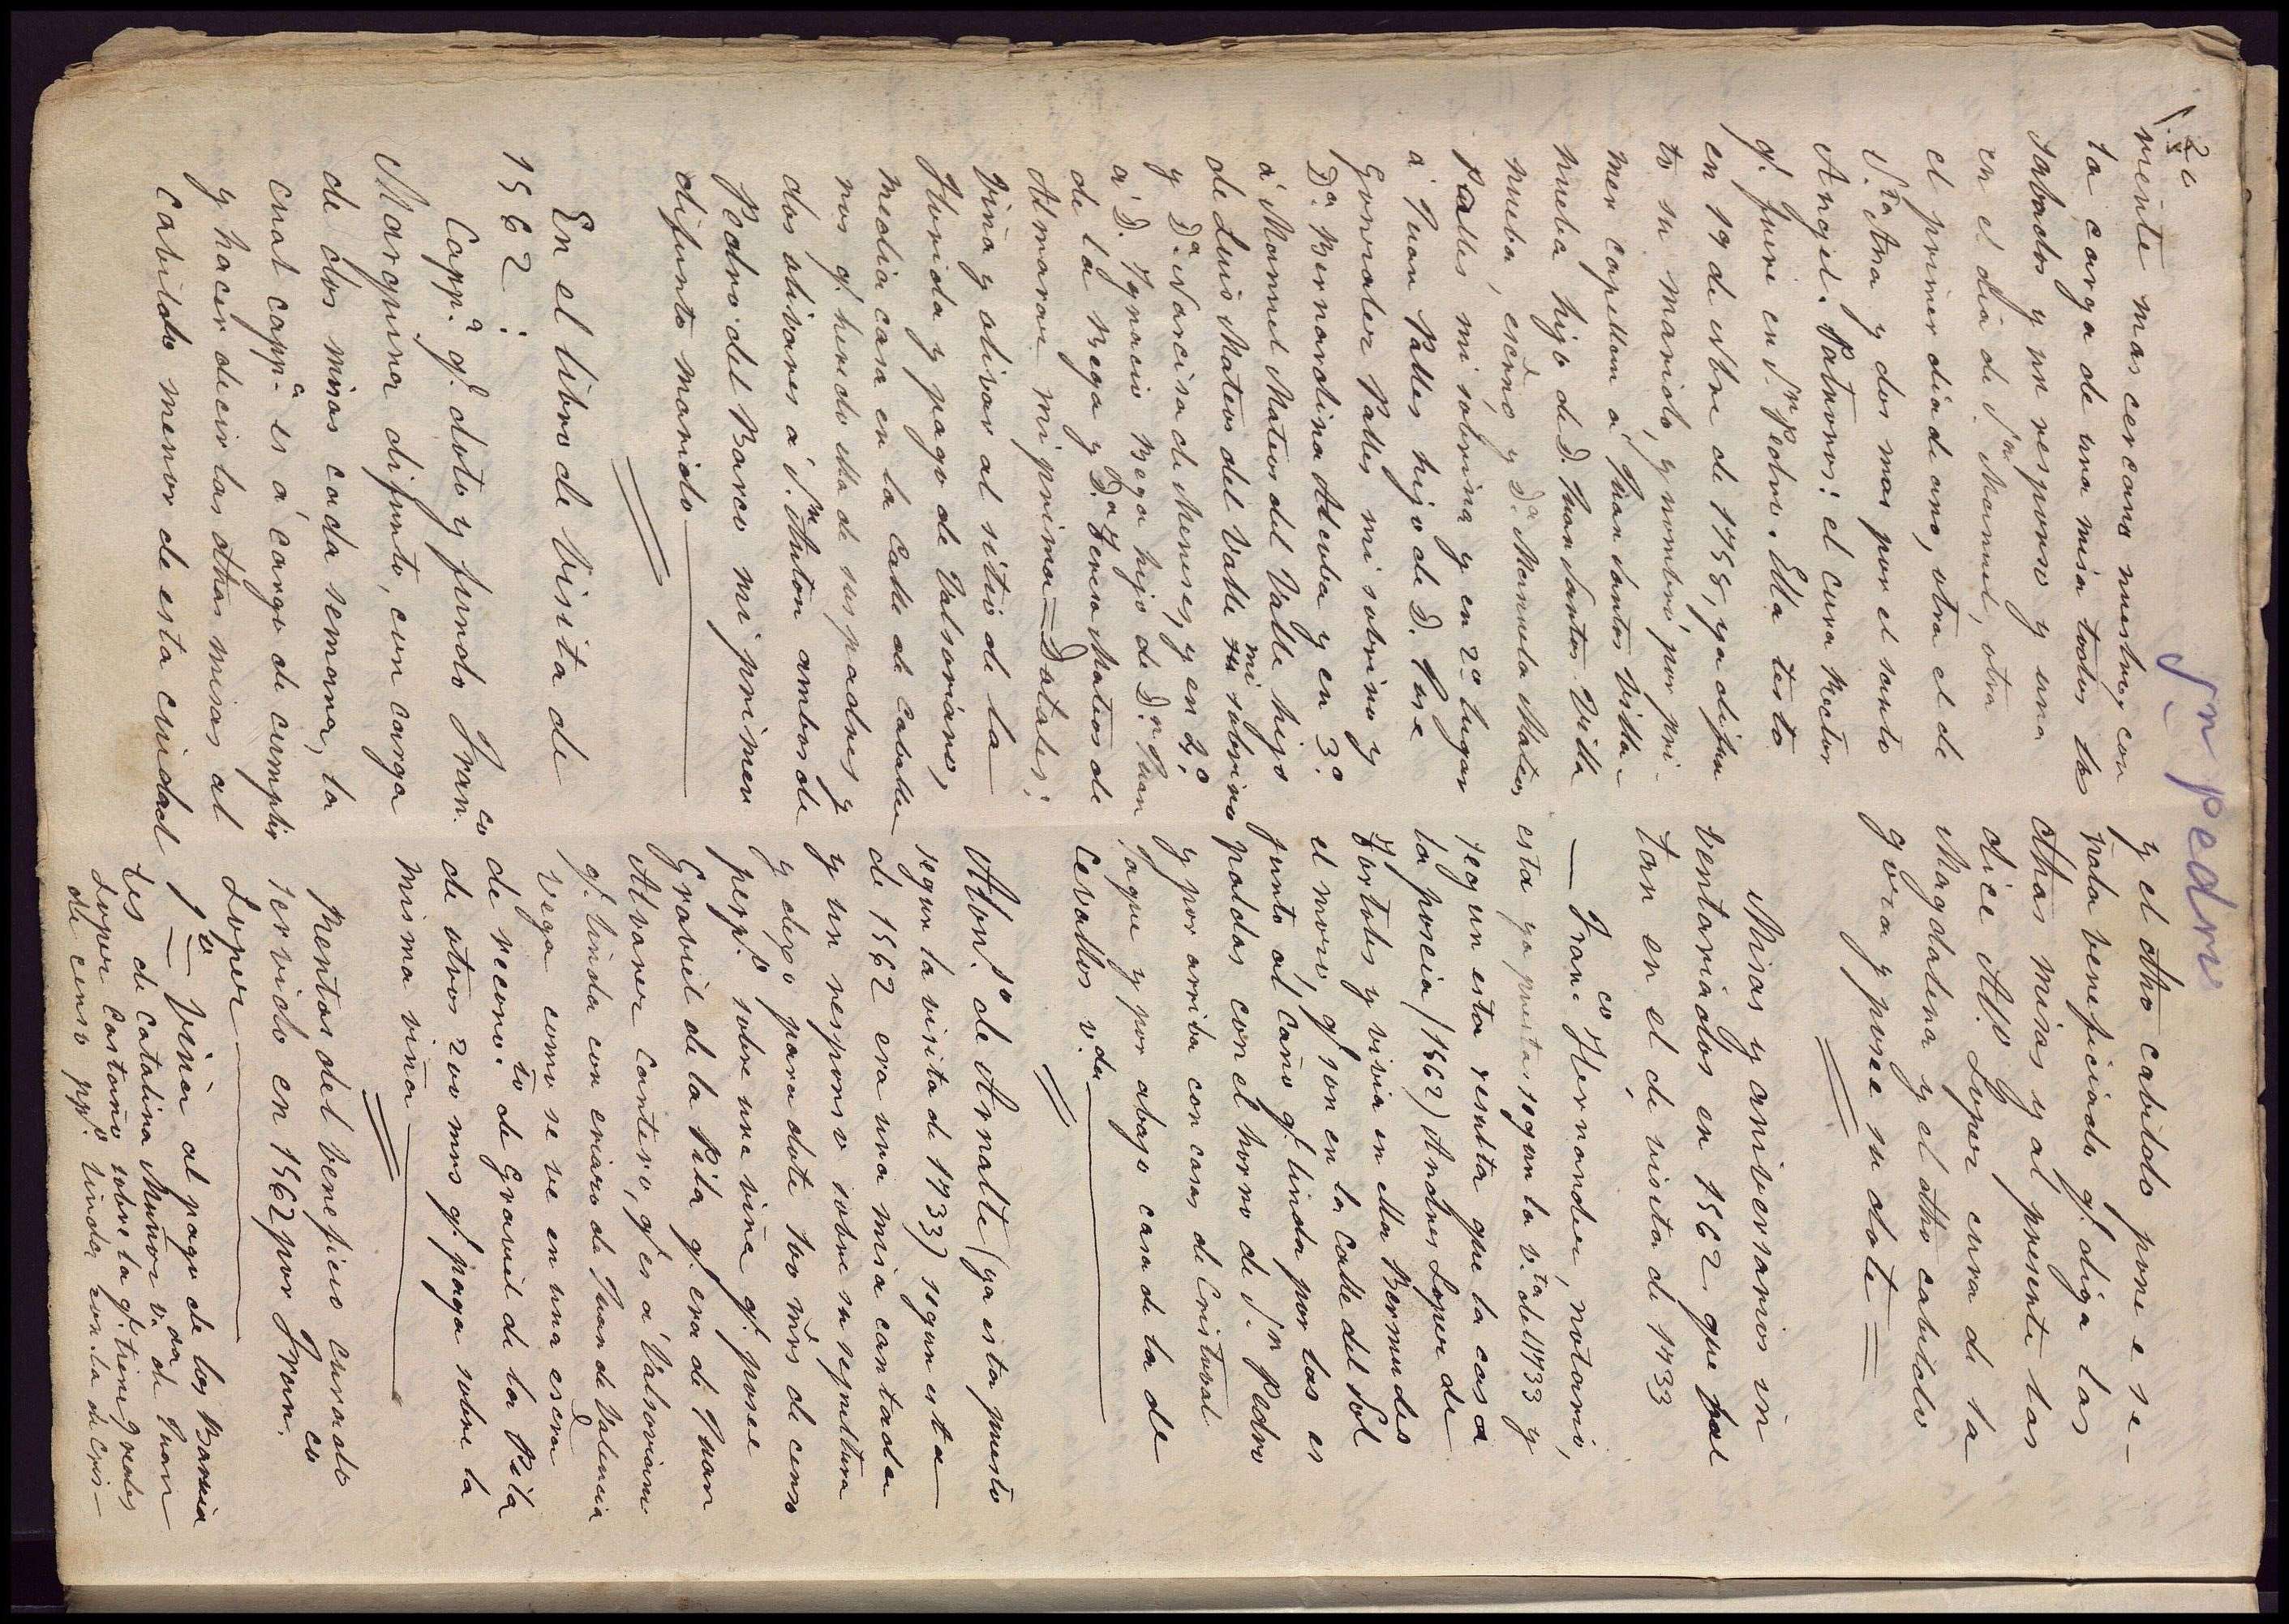 Sn pedro
riente mas cercano nuestro, con
la carga de una misa todos los
sabados y un responso y una
en el dia de Sn. Manuel, otra
el primer dia de año, otra el de
Sta. Ana y dos mas por el santo
Angel. Patronos: el cura Rector
q. fuere en Sn. Pedro. Ella testo
en 19 de 9bre de 1758, ya difun
to su marido, y nombró por pri-
mer capellan á Juan Santos Villa-
nueba hijo de D. Juan Santos Villa
nueba, escno, y Da. Manuela Mateos
Palles mi sobrina y en 2o. lugar
a Juan Palles hijo de D. Jose
Gonzalez Palles mi sobrino y
Da. Bernardina Alcuba y en 3o.
á Manuel Mateos del Valle hijo
de Luis Mateos del Valle mi sobrino
y Da. Narcisa de Meneses, y en 4o.
a D. Ygnacio Bega hijo de Dn. Juan
de la Bega y Da. Teresa Mateos de
Almaraz mi prima = Dotales:
viña y olivar al sitio de la
Florida y pago de Valsoriano,
media casa en la calle de Caballe
ros q. heredo ella de sus padres y
dos olivares a Sn. Anton ambos de
Pedro del Barco mi primer
difunto marido
En el libro de Visita de
1562:
Cappa. q. doto y fundo Franco.
Marquina difunto, con carga
de dos misas cada semana, la
cual cappa. es á cargo de cumplir
y hacer decir las dhas misas al
Cabildo menor de esta ciudad
y el dho cabildo pone e se-
ñala beneficiado q. diga las
dhas misas y al presente las
dice Alo. Lopez cura de la
Magdalena y el dho cabildo
goza y posee su dote =
Misas y aniversarios in
ventariados en 1562 que fal
tan en el de visita de 1733
— Franco. Hernandez, notario,
esta ya puesta segun la vta. de 1733 y
segun esta resulta que la casa
la poseia (1562) Andres Lopez de
Fortes y vivia en ella Bermudes
el mozo, q. son en la Calle del Sol
junto al Caño q. linda por las es
paldas con el horno de Sn. Pedro
y por arriba con casas de Cristobal
Jaque y por abajo casa de la de
Cevallos vda.
Alonso. de Arnalte (ya esta puesto
segun la visita de 1733) segun esta
de 1562 era una misa cantada
y un responso sobre su sepultura
y dejo para dote 400 mrs de censo
perpo. sobre una viña q. posee
Graviel de la Pila q. era de Juan
Alvarez Cantero, q. es a Valsoriano
q. linda con eriazo de Juan de Valencia
Vega como se ve en una escra
de reconoto. de Graviel de la Pila
de otros 200 mrs q. paga sobre la
misma viña
Rentas del beneficio curado
servido en 1562 por Franco.
Lopez
1o. — Viña al pago de los Barria
les de Catalina Muñoz vda. de Juan
Lopez Castaño sobre la q. tiene 9 reales
de censo ppo. linda con la de Cris-